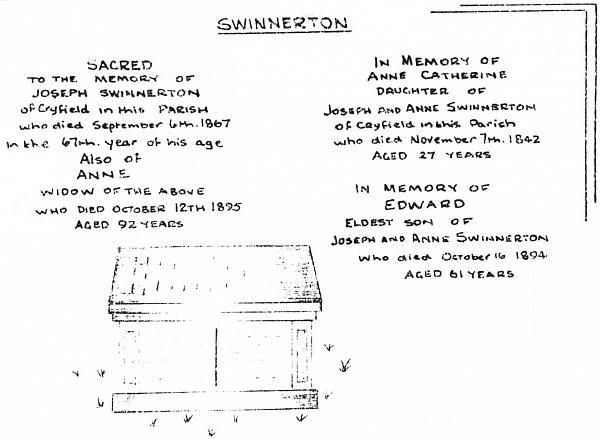 SWINNERTON
SACRED
TO THE MEMORY OF
JOSEPH SWINNERTON
of Cryfield in this PARISH
who died September 6th. 1867
In the 67th. year of his age
Also of
ANNE
WIDOW OF THE ABOVE
WHO DIED OCTOBER 12TH 1895
AGED 92 YEARS
IN MEMORY OF
ANNE CATHERINE
DAUGHTER OF
JOSEPH AND ANNE SWINNERTON
of Cryfield in this Parish
who died November 7th. 1842
AGED 27 YEARS
IN MEMORY OF
EDWARD
ELDEST SON OF
JOSEPH AND ANNE SWINNERTON
who died October 16 1894.
AGED 61 YEARS